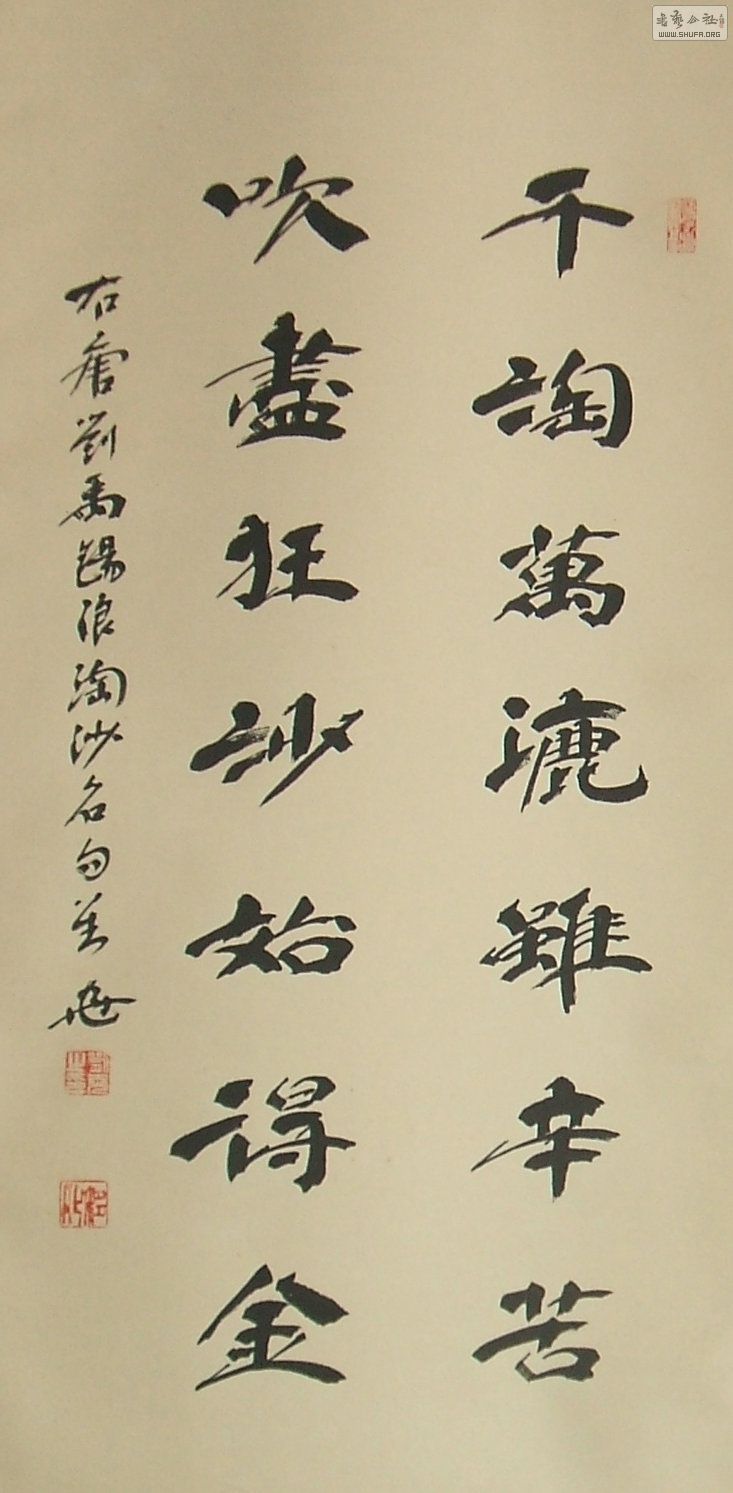 千淘萬漉雖辛苦
吹盡狂沙始得金
右唐劉禹錫浪淘沙名句
WWW.SHUFA.ORG